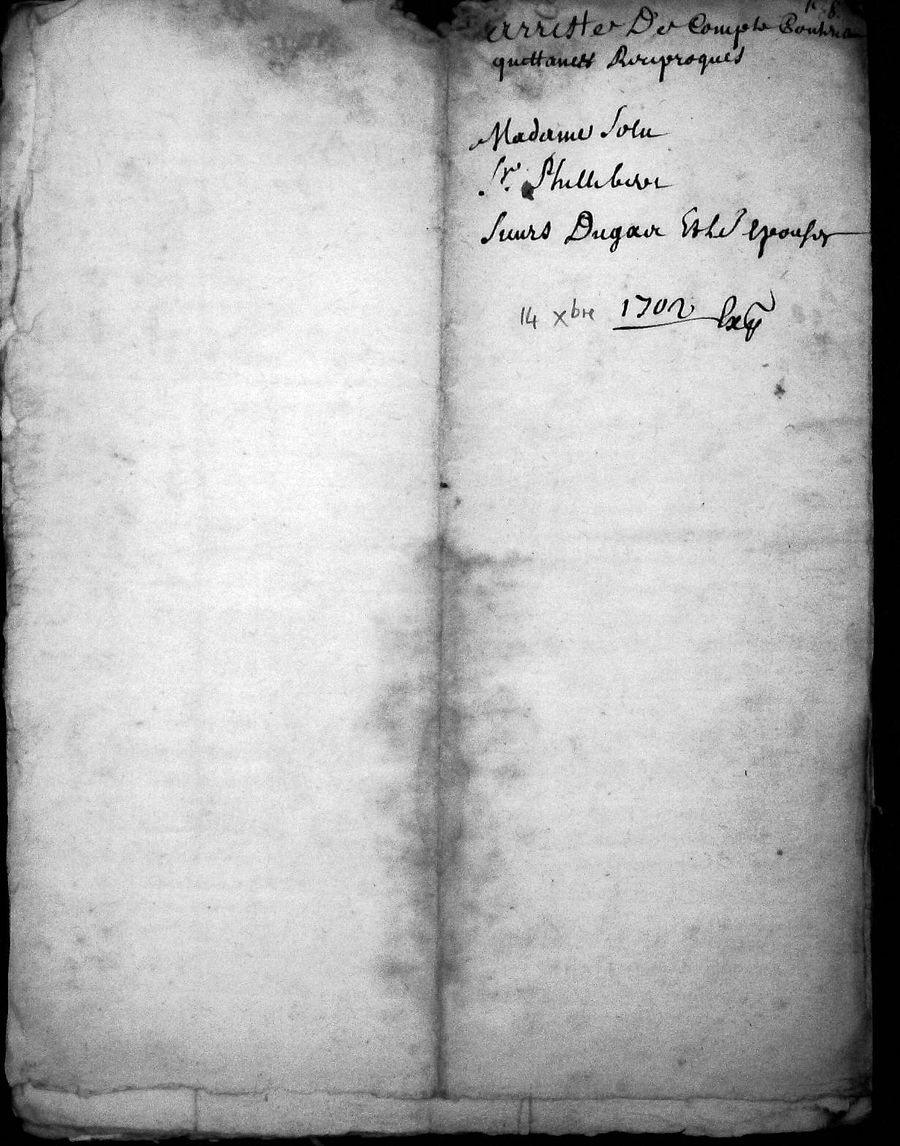 arresté De Compte Contenant
quittances Reciproques
Madame Solu
Sr. Phillibert
Sieurs Dugar Et Le Sr epouse
14 xbre 1702 Exp